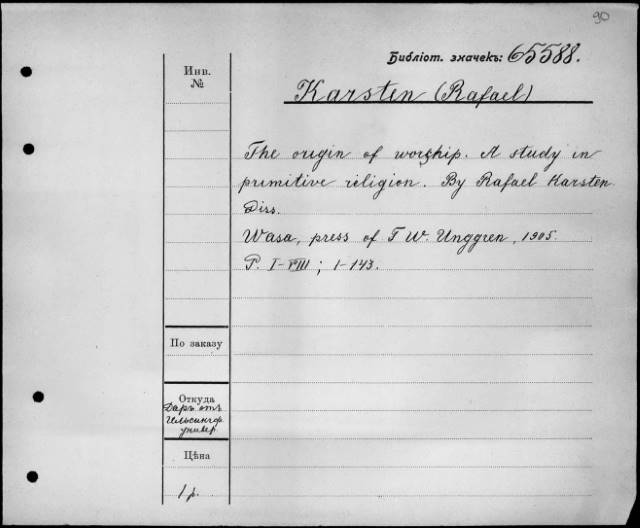 90
Библіот. значекъ: 65588.
Инв.
№
Karsten (Rafael)
The origin of worship. A study in
primitive religion. By Rafael Karsten.
Diss.
Wasa, press of F. W. Unggren, 1905.
P. I-VIII; 1-143.
По заказу
Откуда
Даръ отъ
Гельсингф.
универ.
Цѣна
1 р.